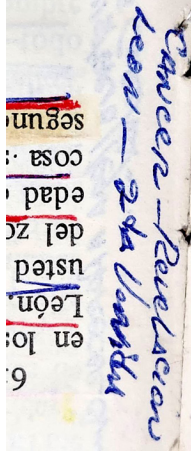 Cancer – Revelacion
Leon – 2da Venida
6:
en los
León.
usted
del zo
edad
cosa
segun